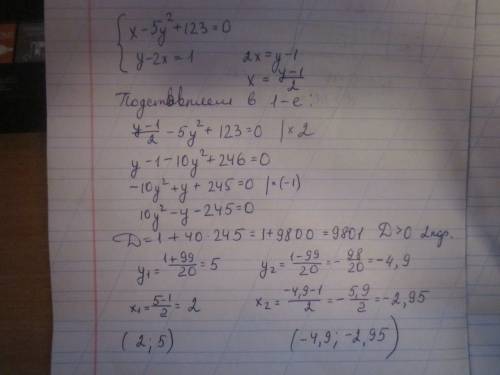 { x - 5y² + 123 = 0
y - 2x = 1   2x = y - 1
x = (y-1)/2
Подставляем в 1-е:
(y-1)/2 - 5y² + 123 = 0 | × 2
y - 1 - 10y² + 246 = 0
-10y² + y + 245 = 0 | × (-1)
10y² - y - 245 = 0
D = 1 + 40 · 245 = 1 + 9800 = 9801   D > 0   2 кор.
y₁ = (1+99)/20 = 5   y₂ = (1-99)/20 = -98/20 = -4,9
x₁ = (5-1)/2 = 2   x₂ = (-4,9-1)/2 = -5,9/2 = -2,95
(2; 5)   (-4,9; -2,95)